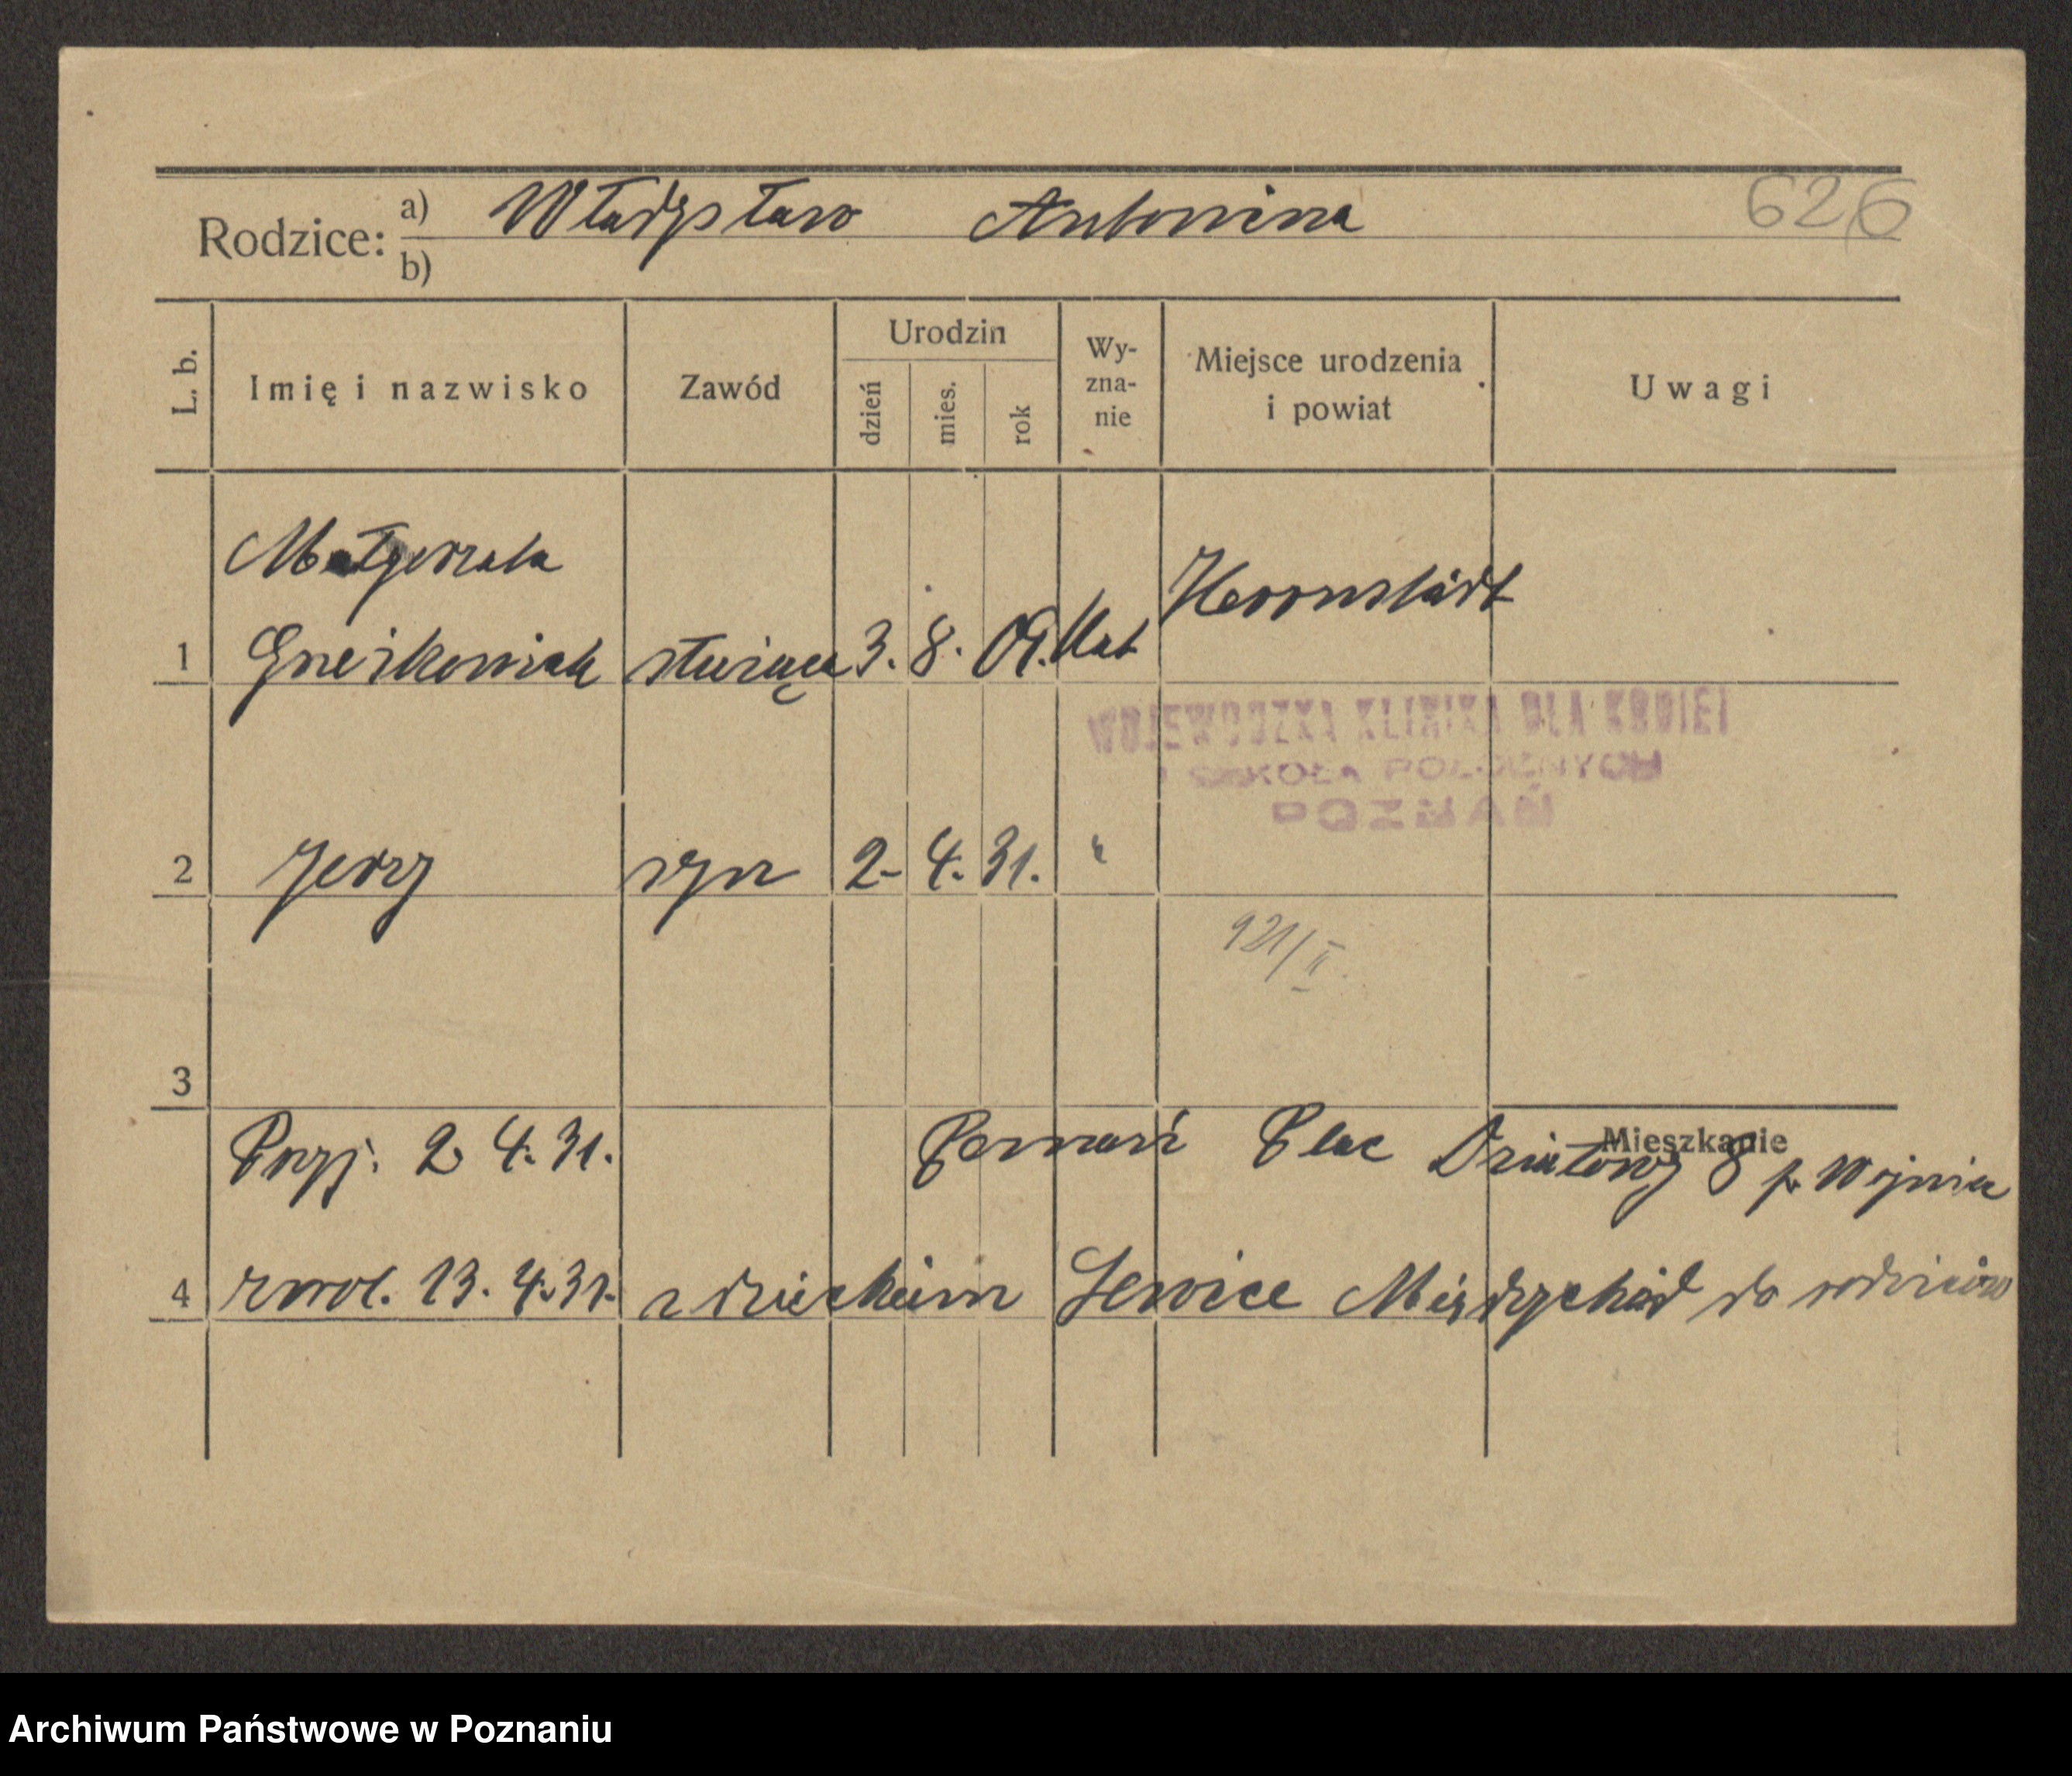 Rodzice: a) Władysław Antonina 626
b)
L. b. Imię i nazwisko Zawód Urodzin dzień mies. rok Wy-zna-nie Miejsce urodzenia i powiat Uwagi
Małgorzata
1 służąca 3. 8. 09. Kat Herrnstädt
WOJEWÓDZKA KLINIKA DLA KOBIET
I SZKOŁA POŁOŻNYCH
POZNAŃ
2 Jerzy syn 2. 4. 31. "
921/II.
3
Mieszkanie
Przyj. 2 4. 31. Poznań Plac Działowy 8 p.
4 zwol. 13. 4. 31. z dzieckiem Lewice Międzychód do rodziców
Archiwum Państwowe w Poznaniu